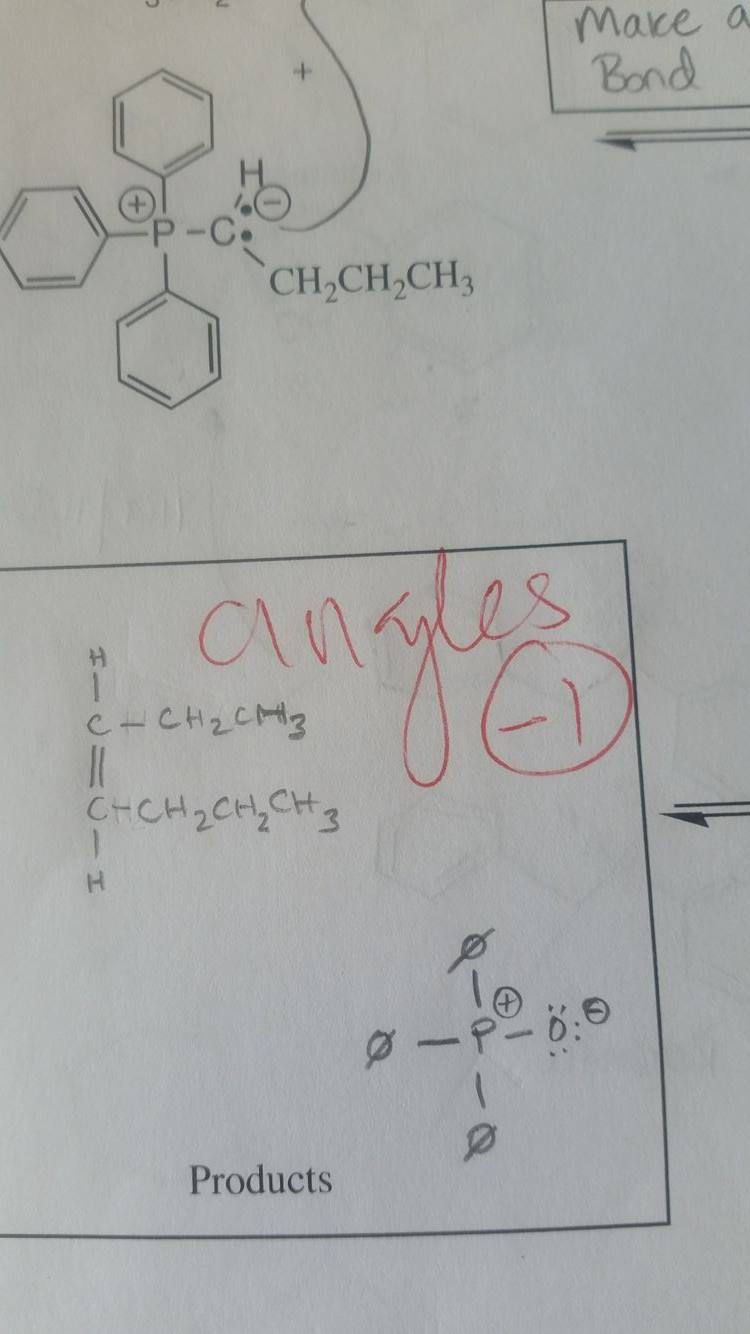 Make a
Bond
+
H
⊕
⊖
P–C:
CH₂CH₂CH₃
angles
-1
H
C–CH₂CH₃
C–CH₂CH₂CH₃
H
Ø
⊕
Ø–P–Ö:⊖
Ø
Products